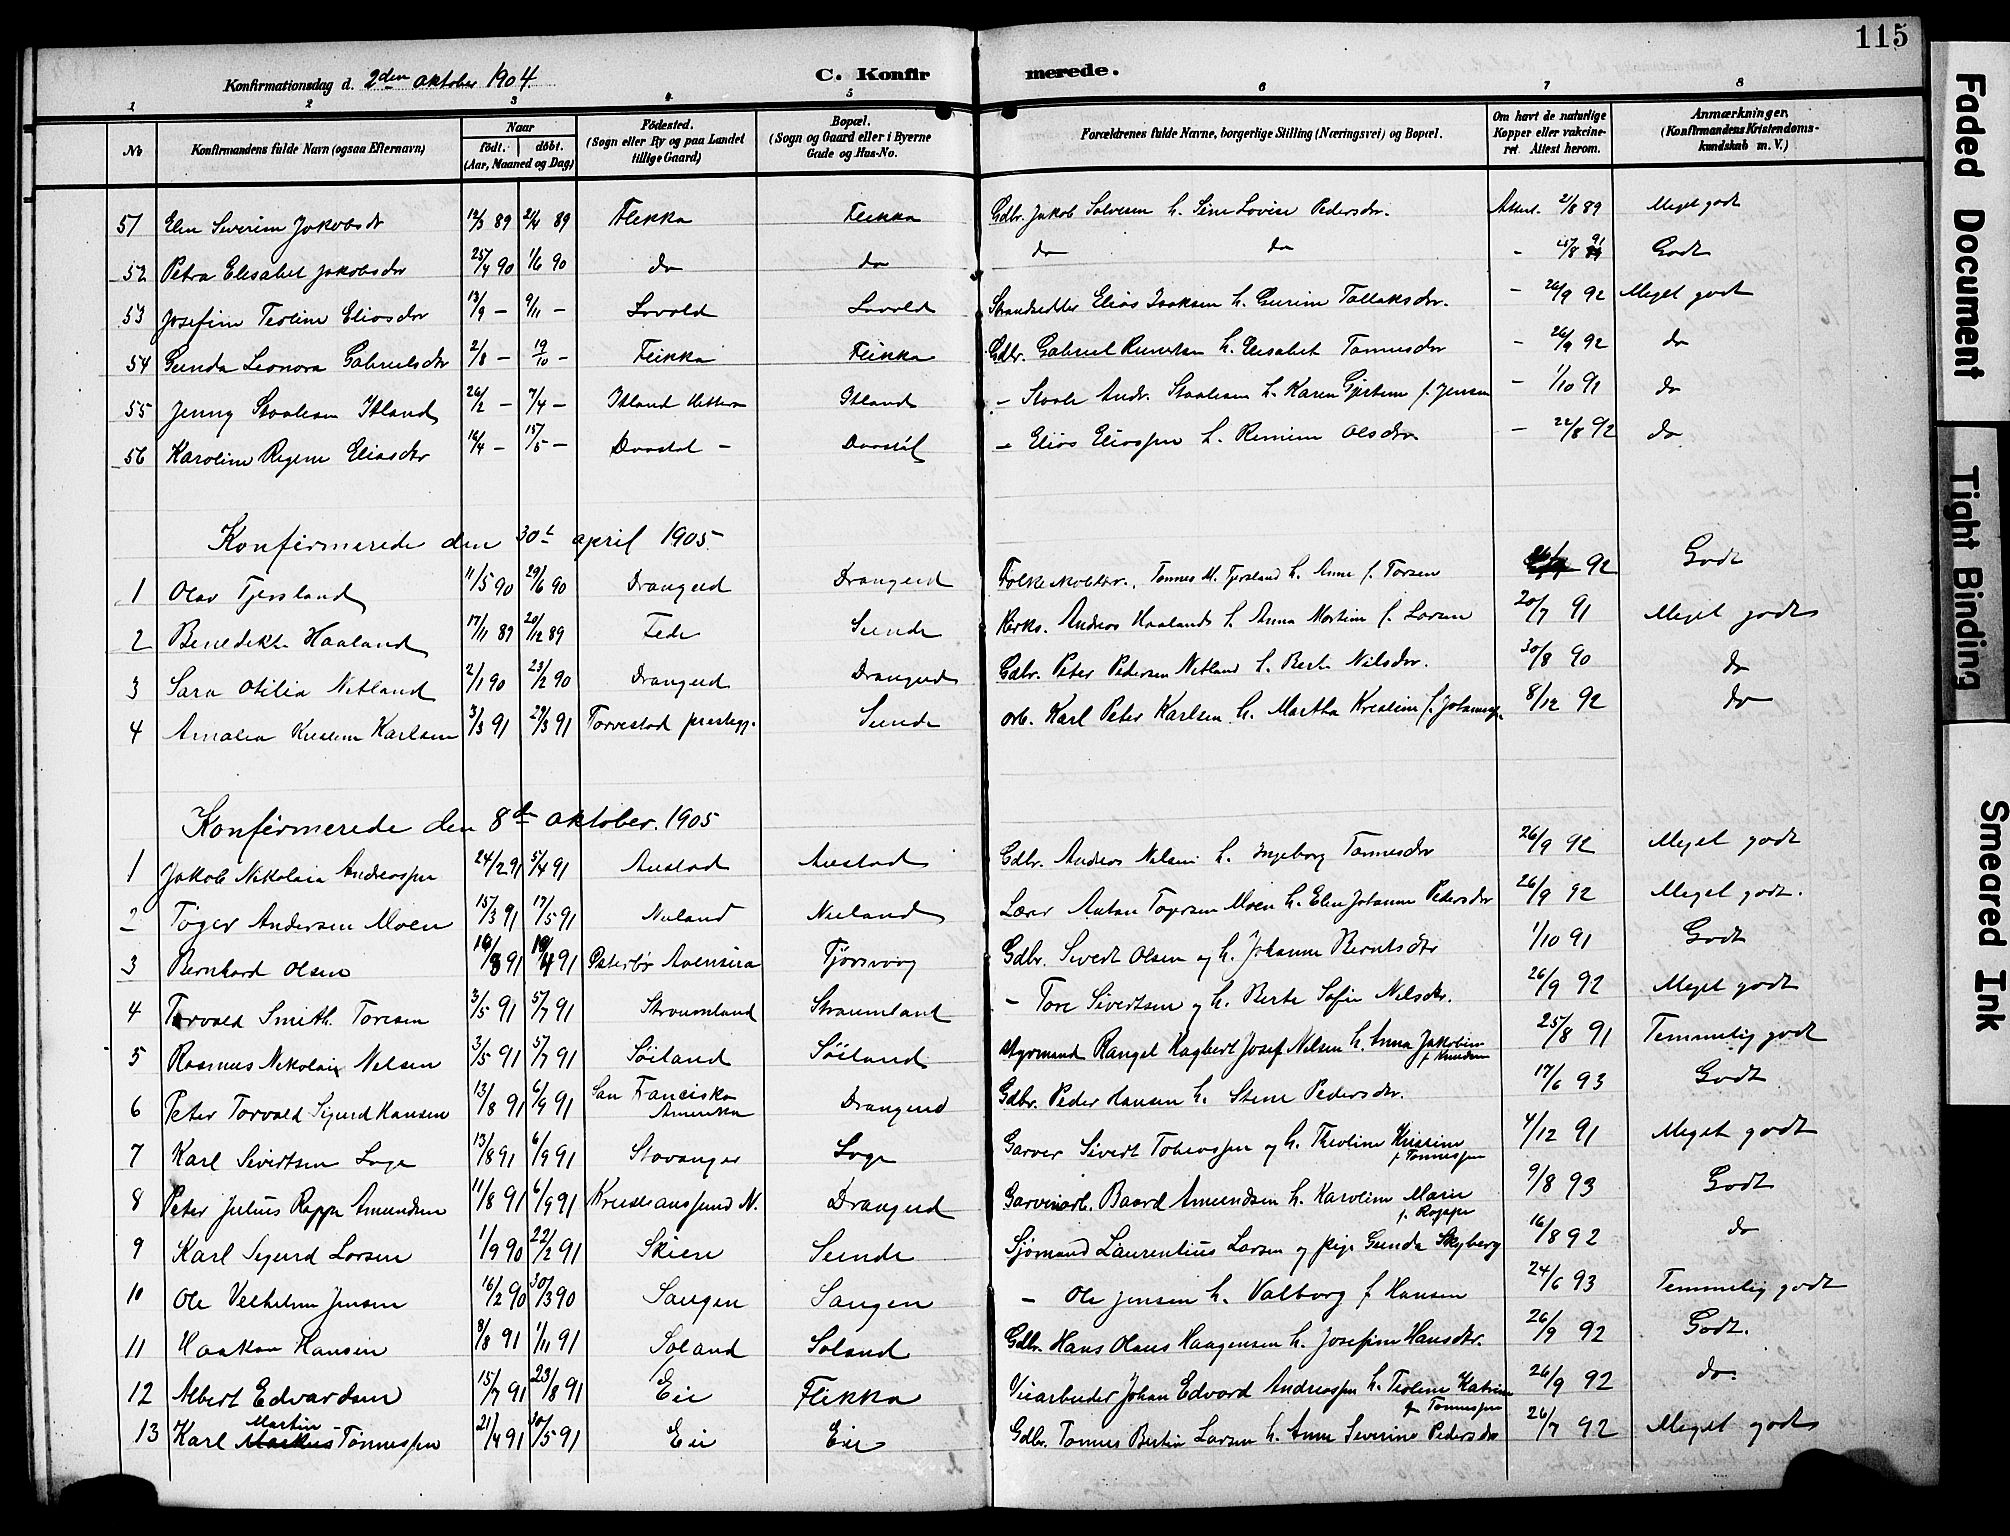 115
Konfirmationsdag d. 2den oktober 1904.
C. Konfirmerede.
1 2 3 4 5 6 7 8
No
Konfirmandens fulde Navn (ogsaa Efternavn)
Naar
født. døbt.
(Aar, Maaned og Dag)
Fødested.
(Sogn eller By og paa Landet
tillige Gaard)
Bopæl.
(Sogn og Gaard eller i Byerne
Gade og Hus-No.
Forældrenes fulde Navne, borgerlige Stilling (Næringsvei) og Bopæl.
Om havt de naturlige
Kopper eller vakcine-
ret. Attest herom.
Anmærkninger.
(Konfirmandens Kristendoms-
kundskab m. V.)
51 Elen Severine Jakobsdr 12/3 89 21/4 89 Flikka Flikka Gdbr. Jakob Salvesen h. Sine Lovise Pedersdr. Attest. 2/8 89 Meget godt
52 Petra Elisabet Jakobsdr 25/4 90 1/6 90 do do do do - 15/8 91 Godt
53 Josefine Teoline Eliasdr 13/9 - 9/11 - Lavold Lavold Strandsidder Elias Isaksen h. Gurine Tollaksdr. - 26/9 92 Meget godt
54 Gunda Leonora Gabrielsdr 2/8 - 19/10 - Flikka Flikka Gdbr. Gabriel h. Elisabet Tønnesdr - 26/9 92 do
55 Jenny Staalesen Itland 26/2 - 7/4 - Itland Hitterø Itland - Staale Andr. Staalesen h. Karen f. Jensen - 1/10 91 do
56 Karoline Regine Eliasdr 16/4 - 15/5 - Daastøl - Daastøl - Elias Eliassen h. Olsdr. - 22/8 92 do
Konfirmerede den 30te april 1905.
1 Olav Tjersland 11/5 90 29/6 90 Drangeid Drangeid Folkeskoleldr. Tønnes M. Tjersland h. Anne f. Torsen 92 Godt
2 Benedikte Haaland 17/11 89 20/12 89 Fede Sunde Kirks. Andreas Haaland h. Anna Martine f. Larsen 20/7 91 Meget godt
3 Sara Otilia Netland 2/1 90 23/2 90 Drangeid Drangeid Gdbr. Peter Pedersen Netland h. Berte Nilsdr. 30/8 90 do
4 Amalia Kristine Karlsen 3/3 91 29/3 91 Torvestad prestegj. Sunde Arb. Karl Peter Karlsen h. Martha Kristine f. Johannesen 8/12 92 do
Konfirmerede den 8de oktober. 1905
1 Jakob Nikolai Andreassen 24/2 91 5/4 91 Austad Austad Gdbr. Andreas Nilsen h. Ingeborg Tønnesdr 26/9 92 Meget godt
2 Tøger Andersen Moen 15/3 91 17/5 91 Nuland Nuland Lærer Anton Tøgersen Moen h. Elen Johanne Pedersdr 26/9 92 Meget godt.
3 Bernhard Olsen 16/3 91 19/4 91 Tjørsvaag Gdbr. Sivert Olsen og h. Johanne Berntsdtr 1/10 91 Godt
4 Torvald Smith Toresen 3/5 91 5/7 91 Straumland Straumland - Tore Sivertsen og h. Berte Sofie Nilsdtr. 26/9 92 Meget godt
5 Rasmus Nikolai Nelsen 3/5 91 5/7 91 Søiland Søiland Styrmand Rangel Hagbert Josef Nelsen h. Anna Jakobine f. Knudsen 25/8 91 Temmelig godt
6 Peter Torvald Sigurd Hansen 13/8 91 6/9 91 San Francisko Amerika Drangeid Gdbr. Peder Hansen h. Stine Pedersdtr. 17/6 93 Godt
7 Karl Sivertsen Loge 13/8 91 6/9 91 Stavanger Loge Garver Sivert Tobiassen og h. Theoline Kristine f. Tønnessen 4/12 91 Meget godt
8 Peter Julius Rapp Amundsen 11/8 91 6/9 91 Kristianssund N. Drangeid Garveriarb. Baard Amundsen h. Karoline Marie f. Rappe 9/8 93 Godt
9 Karl Sigurd Larsen 1/9 90 22/2 91 Skien Sunde Sjømand Laurentius Larsen og pige Gunda Skyberg 16/8 92 do
10 Ole Vilhelm Jensen 16/2 90 30/3 90 Saugen Saugen - Ole Jensen h. Valborg f Hansen 24/6 93 Temmelig godt
11 Haakon Hansen 8/8 91 1/11 91 Soland Soland Gdbr. Hans Olaus Haagensen h. Josefine Hansdtr. 26/9 92 Godt.
12 Albert Edvardsen 15/7 91 23/8 91 Eie Flikka Veiarbeider Johan Edvard Andreassen h. Teoline Katrine f Tønnessen 26/9 92 do
13 Karl Martin Markus Tønnessen 21/4 91 30/5 91 Eie Eie Gdbr. Tønnes Bertin Larsen h. Anne Severine Pedersdtr 26/7 92 Meget godt
Faded Document
Tight Binding
Smeared Ink